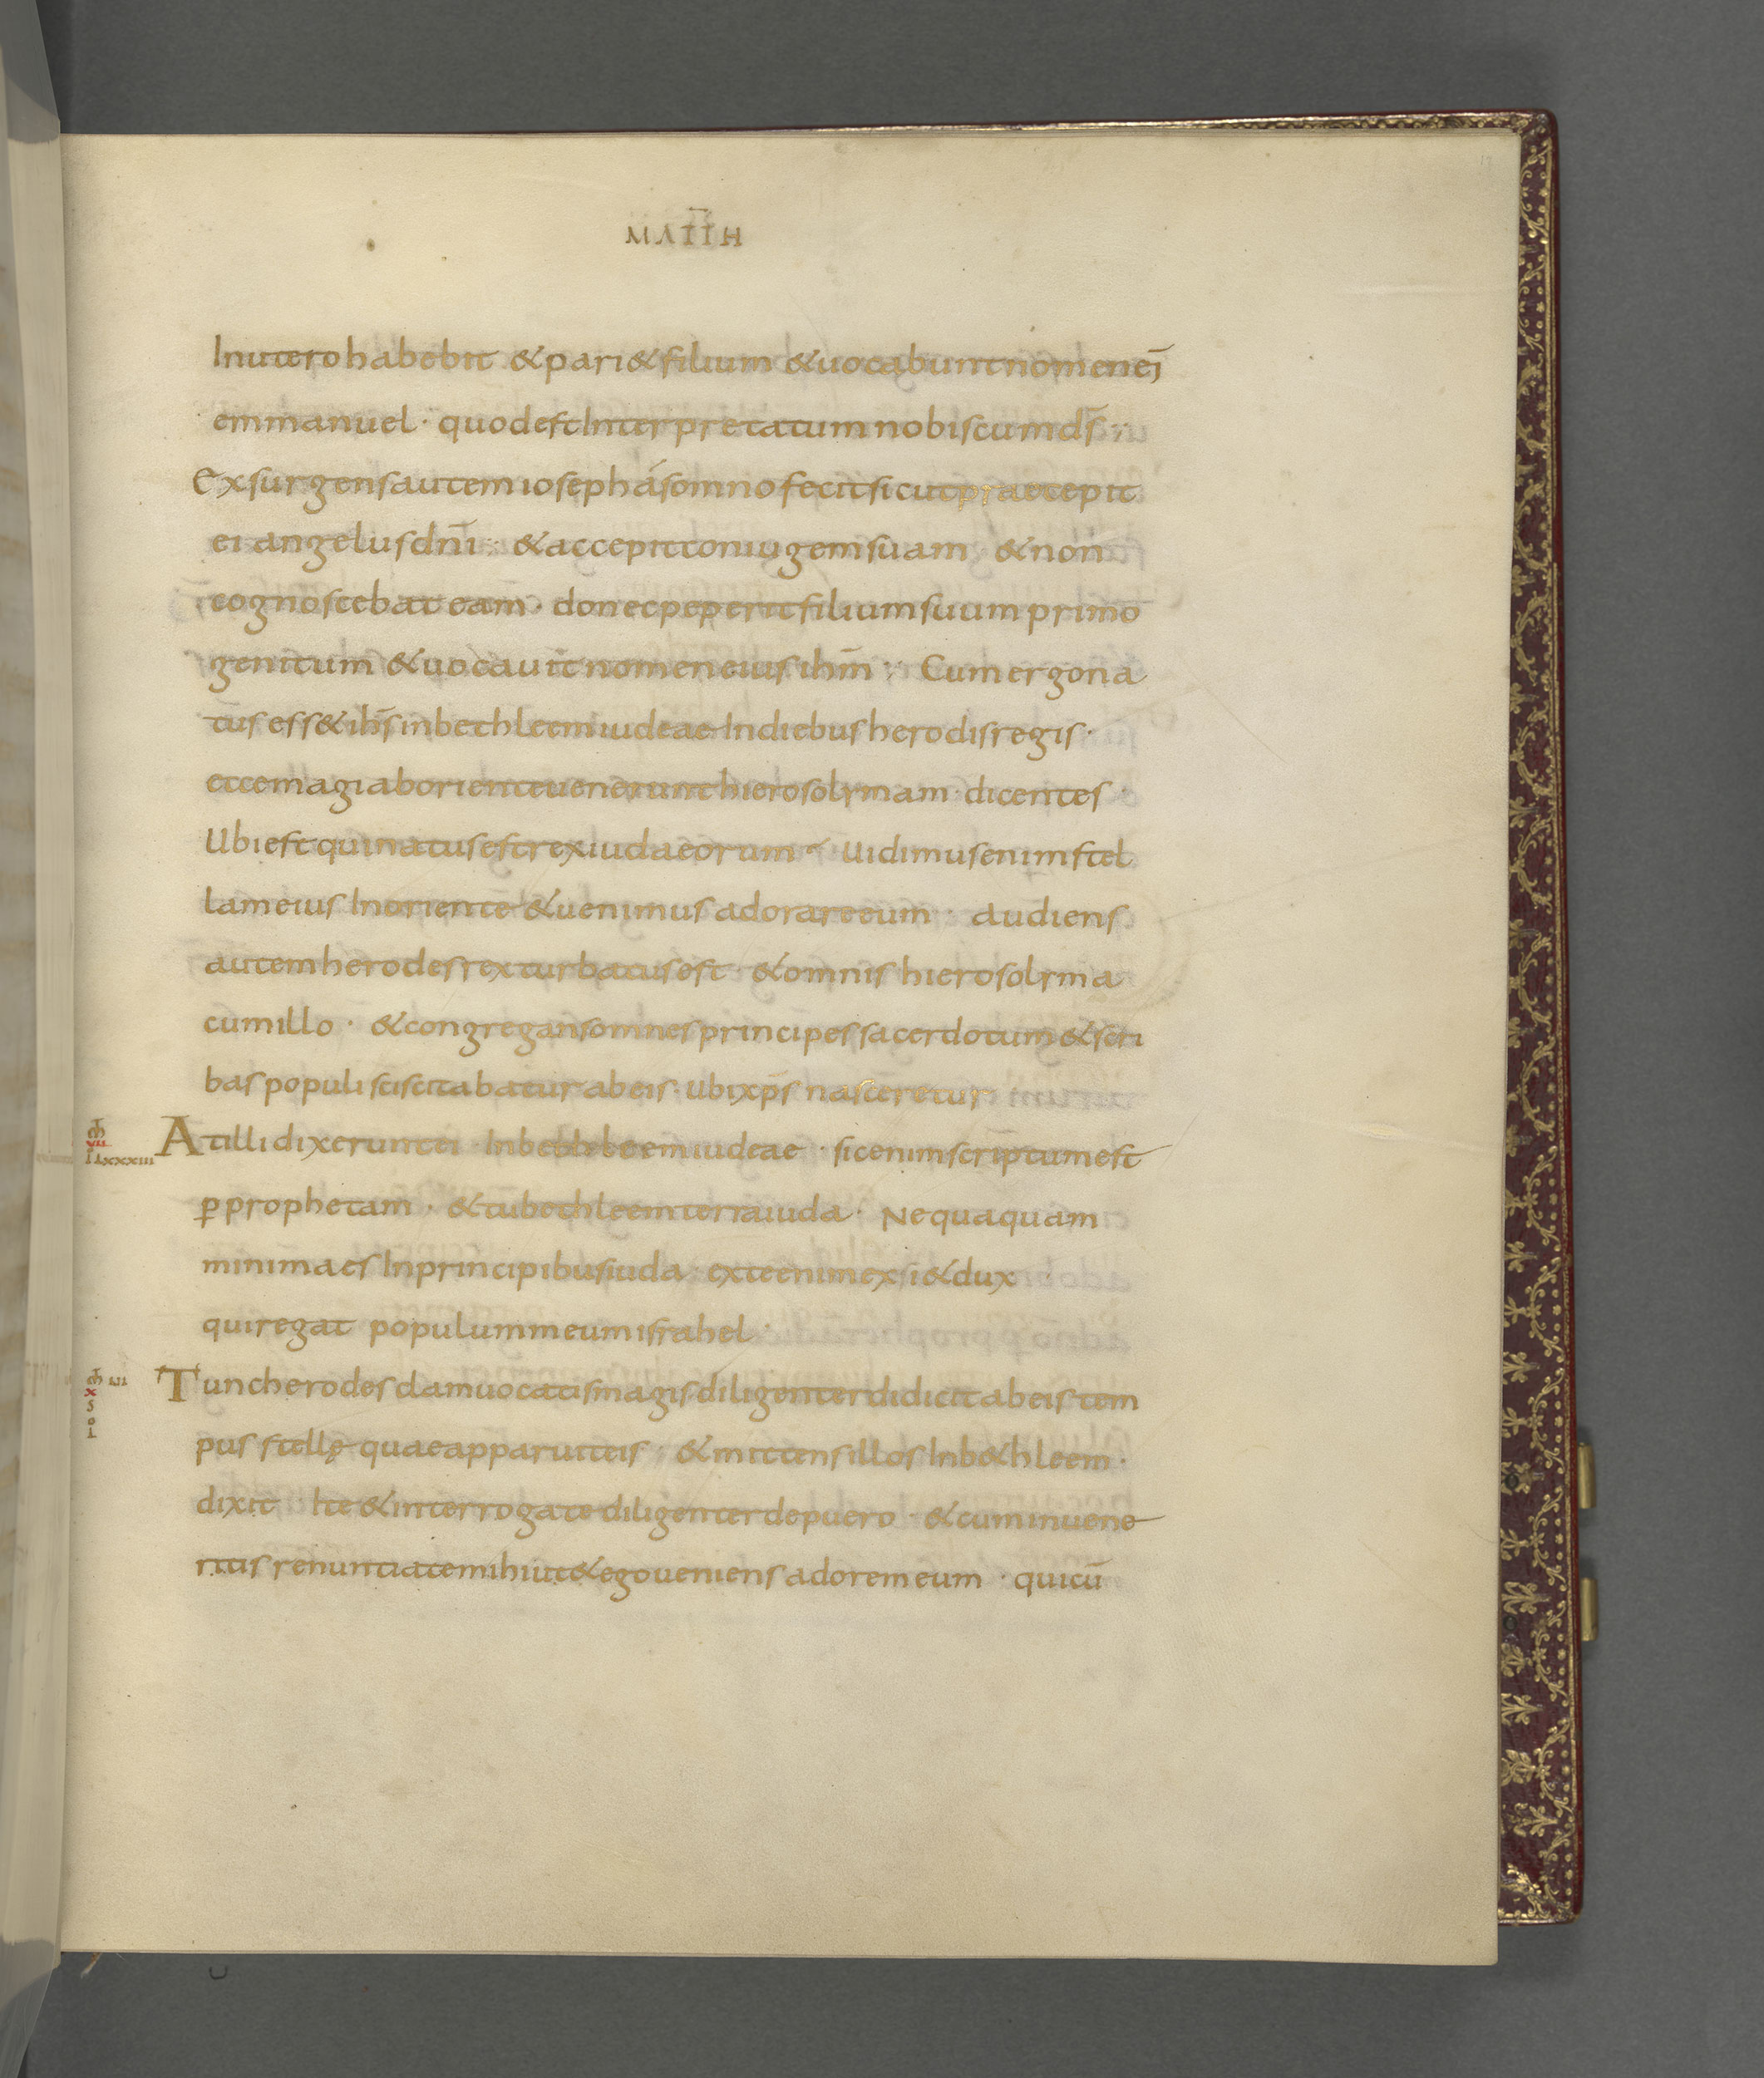 MATTH
In utero habebit & pari& filium & uocabunt nomen ei
emmanuel · quod est Interpretatum nobiscum ds̄
Exsurgens autem ioseph á somno fecit sicut praecepit
ei angelus dn̄i · & accepit coniugem suam & non
cognoscebat eam · donec peperit filium suum primo
genitum & uocauit nomen eius ihm̄ · Cum ergo na
tus ess& ihs̄ in bethleem iudeae In diebus herodis regis ·
ecce magi ab oriente uenerunt hierosolymam · dicentes
Ubi est qui natus est rex iudaeorum · Uidimus enim stel
lam eius In oriente & uenimus adorare eum · audiens
autem herodes rex turbatus est · & omnis hierosolyma
cum illo · & congregans omnes principes sacerdotum & scri
bas populi sciscitabatur ab eis · ubi xp̄s nasceretur
At illi dixerunt ei · In bethleem iudeae · sic enim scriptum est
ꝑ prophetam · & tu bethleem terra iuda · Nequaquam
minima es In principibus iuda · ex te enim exsi& dux
qui regat populum meum israhel ·
Tunc herodes clam uocatis magis diligenter didicit ab eis tem
pus stellę quae apparuit eis · & mittens illos In b&hleem ·
dixit Ite & interrogate diligenter de puero · & cum inuene
ritis renuntiate mihi ut & ego ueniens adorem eum · qui cū
VII
LXXXIII
III
X